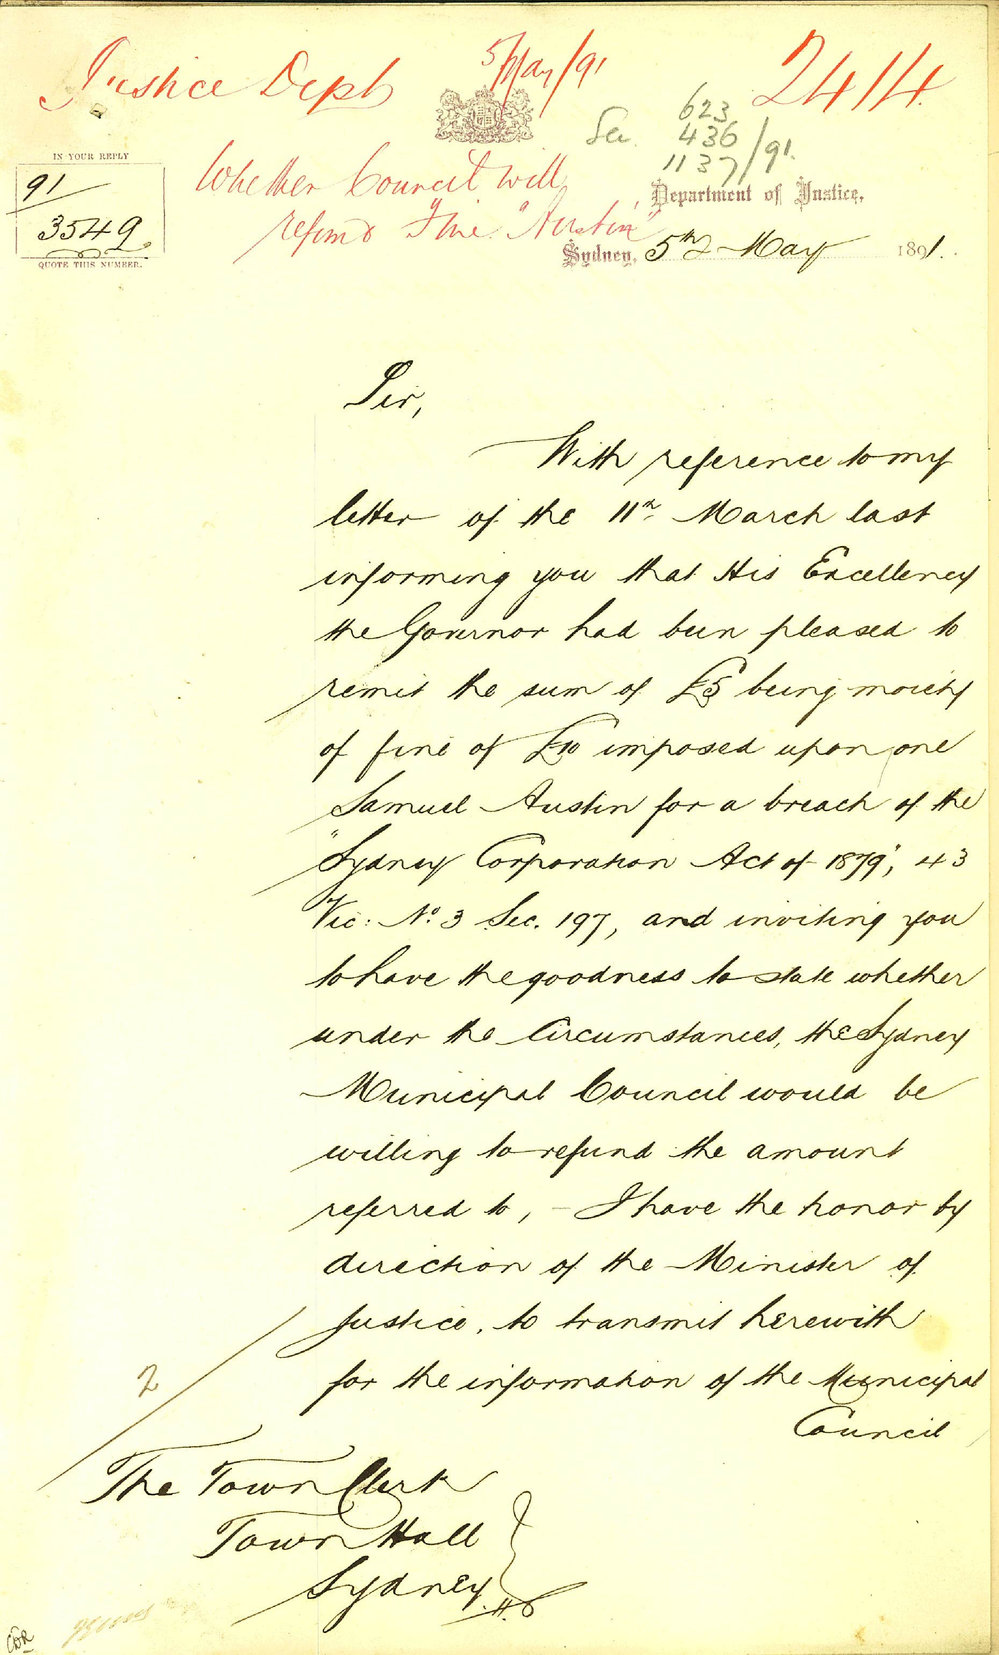 Justice Dept 5 May/91 2414
See 623
436
1137/91.
IN YOUR REPLY
91
3549
QUOTE THIS NUMBER.
Whether Council will
refund Fine "Austin"
Department of Justice,
Sydney, 5th May 1891.
Sir,
With reference to my
letter of the 11th March last
informing you that His Excellency
the Governor had been pleased to
remit the sum of £5 being moiety
of fine of £10 imposed upon one
Samuel Austin for a breach of the
"Sydney Corporation Act of 1879", 43
Vic: No. 3 Sec. 197, and inviting you
to have the goodness to state whether
under the circumstances, the Sydney
Municipal Council would be
willing to refund the amount
referred to, - I have the honor by
direction of the Minister of
Justice, to transmit herewith
for the information of the Municipal
Council
2
The Town Clerk
Town Hall
Sydney